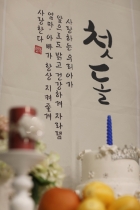 첫돌
사랑하는 우리 아가
앞으로도 밝고 건강하게 자라렴
엄마, 아빠가 항상 지켜줄게
사랑한다